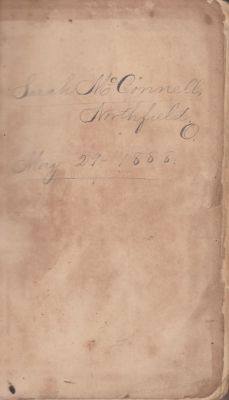 Sarah McConnell,
Northfield,
O.
May 29 - 1888.